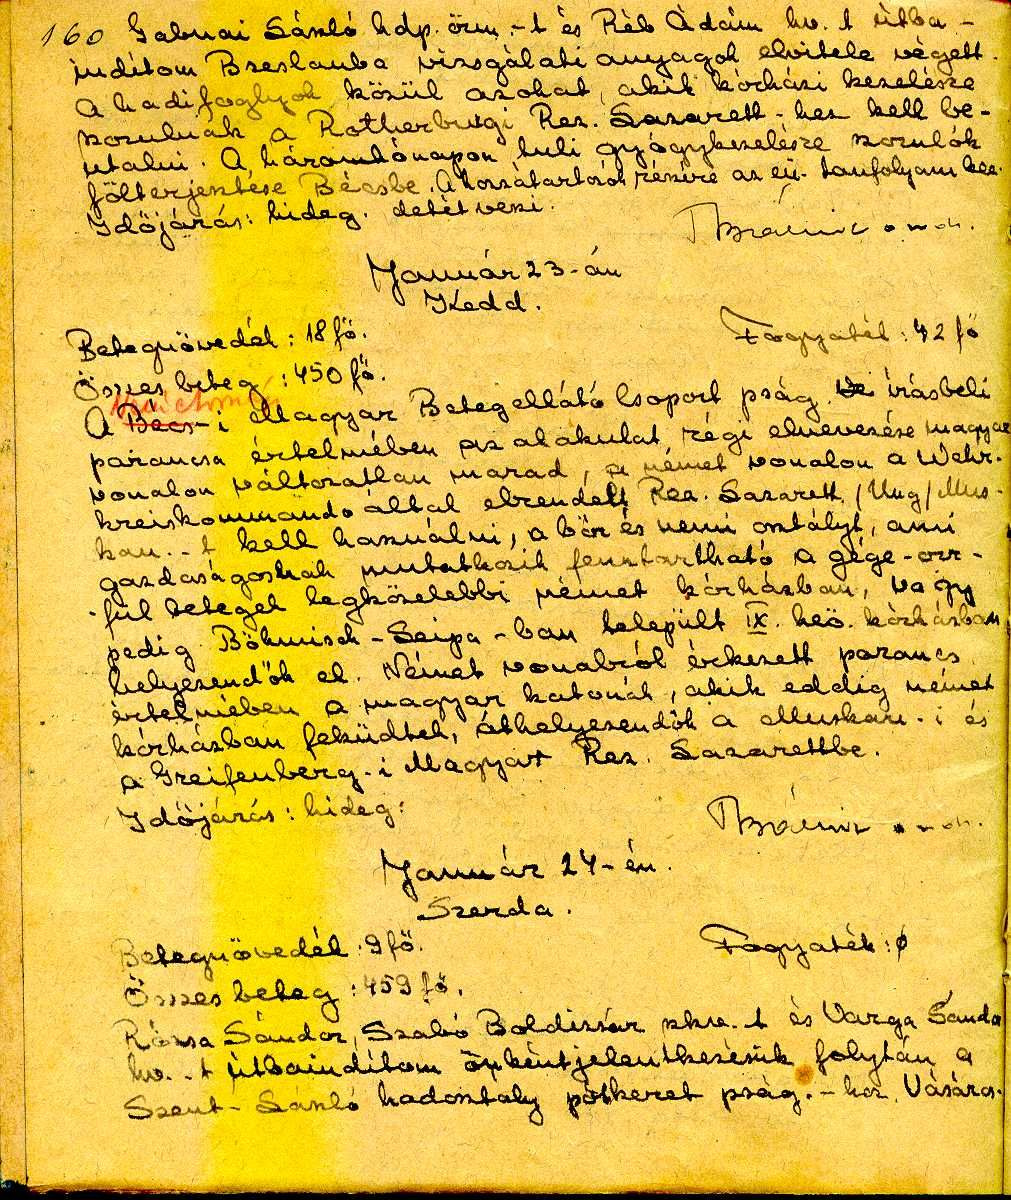 160 Gabnai László hdp. őrm.-t és Réb Ádám hv.-t útba-
indítom Breslauba vizsgálati anyagok elvitele végett.
A hadifoglyok közül azokat, akik kórházi kezelésre
szorulnak a Rotherburgi Res. Lazarett-hez kell be-
utalni. A háromhónapon tuli gyógykezelésre szorulók
fölterjesztése Bécsbe. A hozzátartozók részére az eü. tanfolyam kez-
Időjárás: hideg. detét veszi.
Január 23-án
Kedd.
Betegnövedék: 18 fő. Fogyaték: 42 fő
Összes beteg: 450 fő.
A Bécs-i Magyar Betegellátó Csoport pság. írásbeli
parancsa értelmében az alakulat régi elnevezése magyar
vonalon változatlan marad, a német vonalon a Wehr-
kreiskommandó által elrendelt Res. Lazarett /Ung/ Mus-
kau.-t kell használni, a bőr és nemi osztályt, ami
gazdaságosnak mutatkozik fenntartható a gége-orr-
fül betegek legközelebbi német kórházban, vagy
pedig Böhmisch-Leipa-ban települt IX. heö. kórházban
helyezendők el. Német vonalról érkezett parancs
értelmében a magyar katonák, akik eddig német
kórházban feküdtek, áthelyezendők a Muskau-i és
a Greifenberg-i Magyar Res. Lazarettbe.
Időjárás: hideg:
Január 24-én.
Szerda.
Betegnövedék: 9 fő. Fogyaték: ø
Összes beteg: 459 fő.
Rózsa Sándor, Szabó Boldizsár szkv.-t és Varga Sándor
hv.-t útbaindítom önkéntjelentkezésük folytán a
Szent-László hadosztály pótkeret pság.-hoz Vásáros-